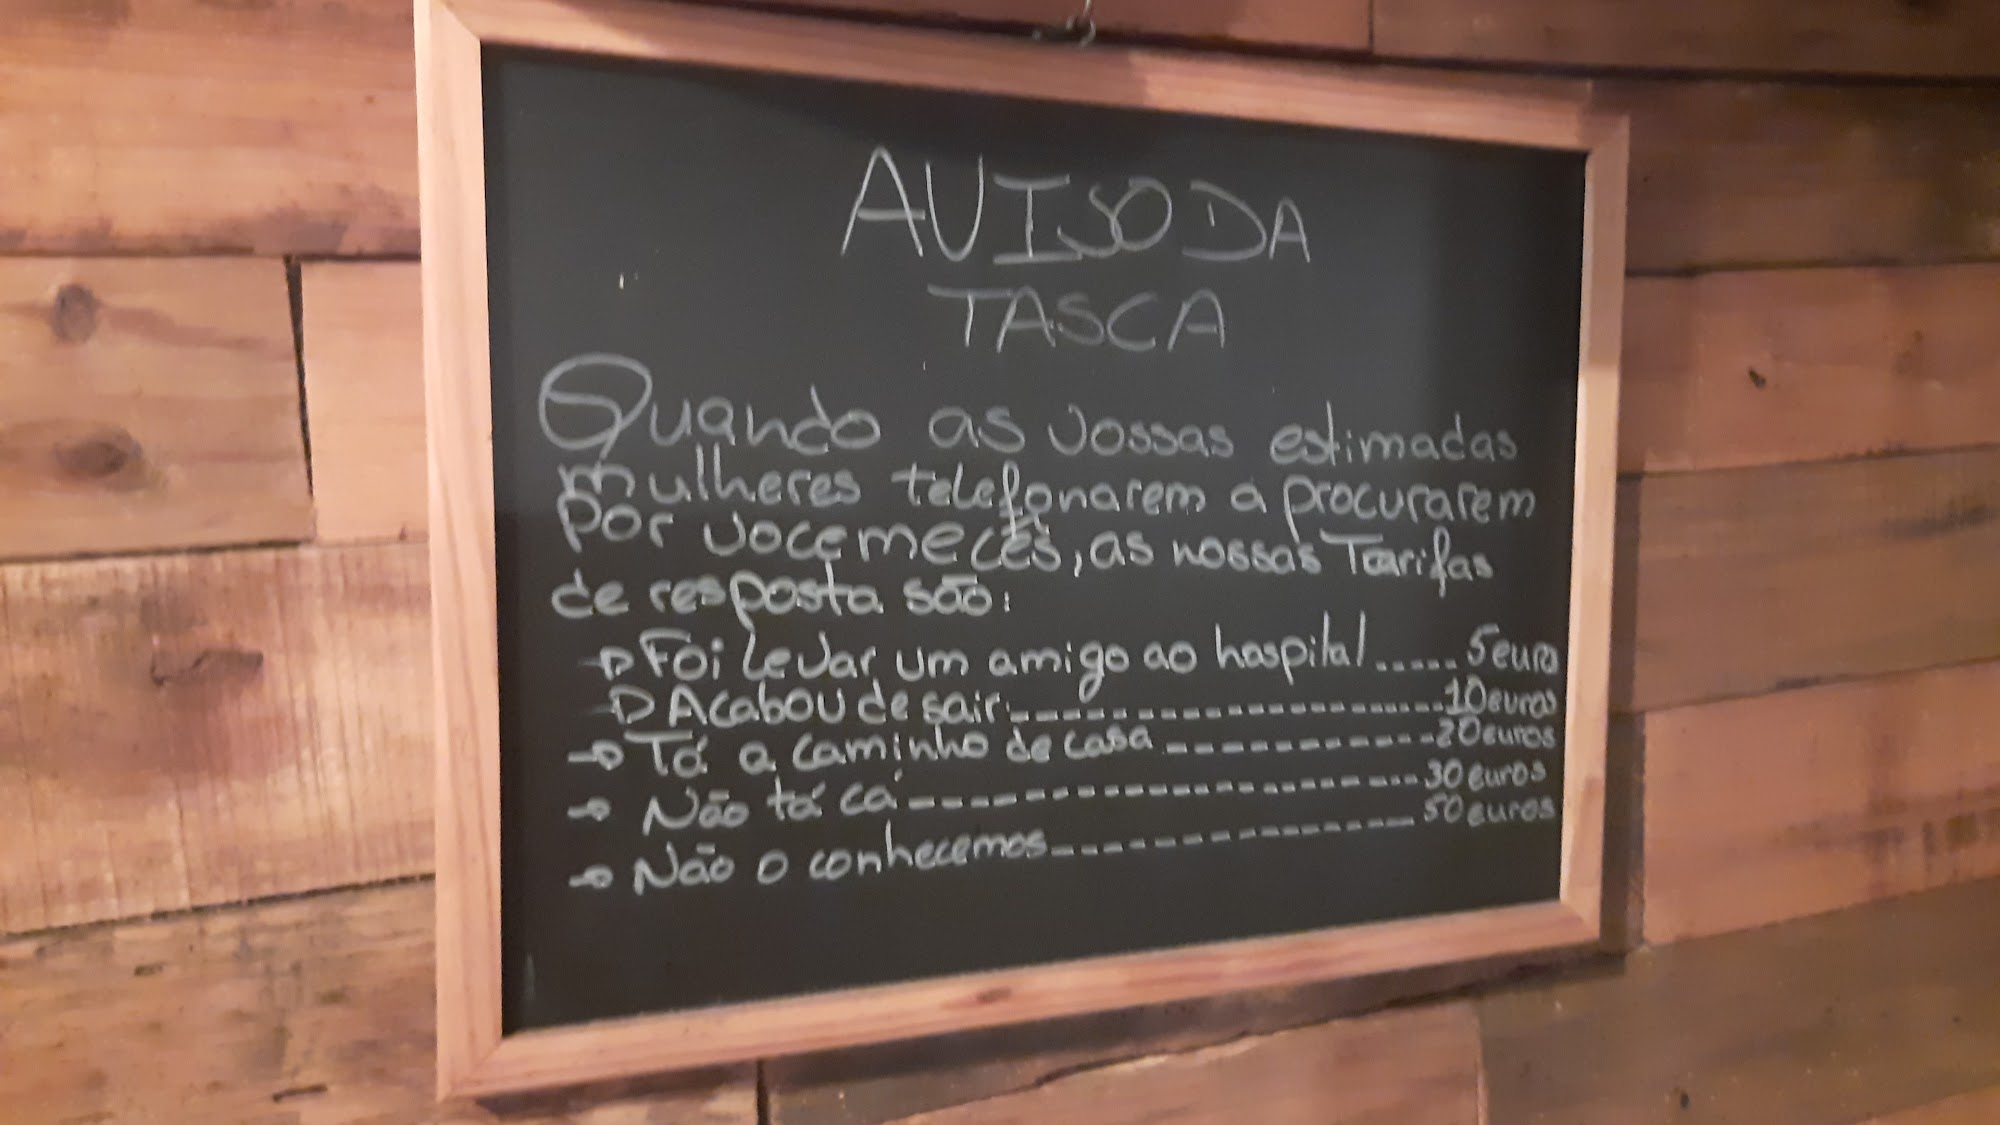 AVISO DA
TASCA
Quando as vossas estimadas
mulheres telefonarem a procurarem
por vocemecês, as nossas Tarifas
de resposta são:
→ Foi levar um amigo ao hospital..... 5 euro
→ Acabou de sair --------------------- 10 euros
→ Tá a caminho de casa ------------- 20 euros
→ Não tá cá ----------------------- 30 euros
→ Não o conhecemos --------------- 50 euros